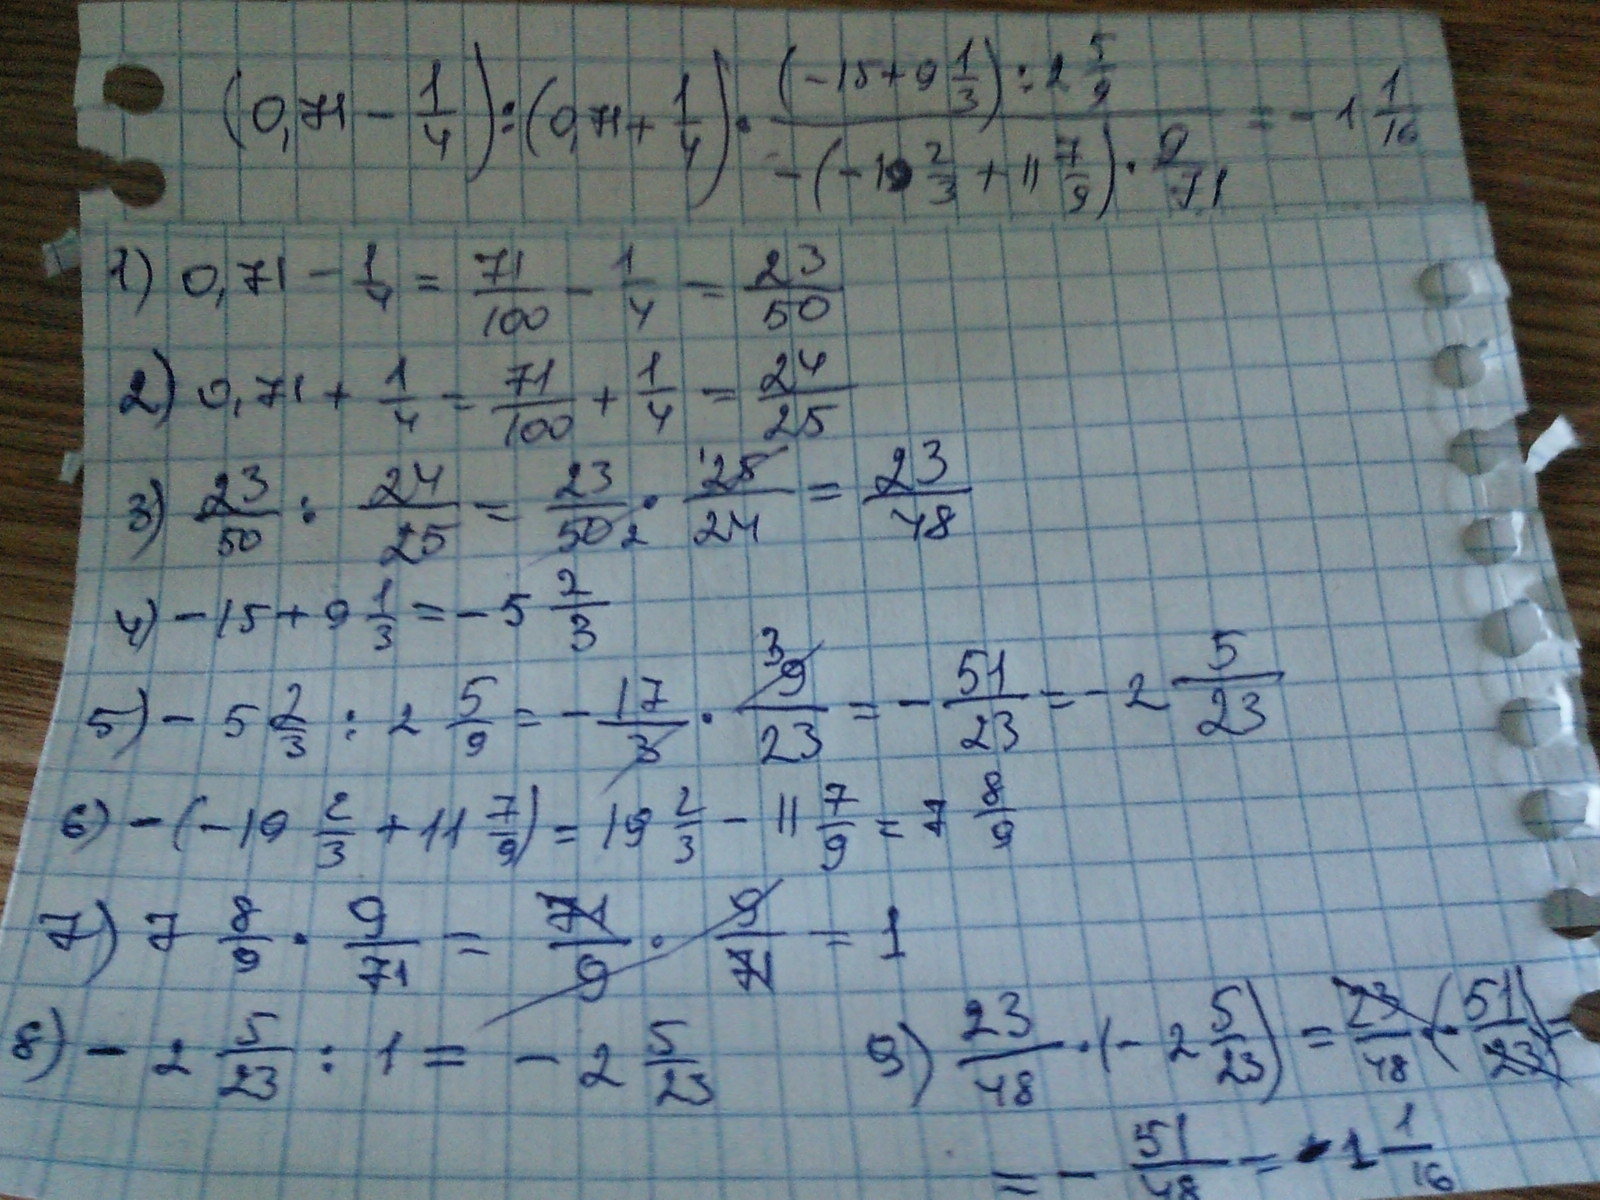 (0,71 - 1/4) : (0,71 + 1/4) · ((-15 + 9 1/3) : 2 5/9) / (-(-19 2/3 + 11 7/9) · 9/71) = -1 1/16
1) 0,71 - 1/4 = 71/100 - 1/4 = 23/50
2) 0,71 + 1/4 = 71/100 + 1/4 = 24/25
3) 23/50 : 24/25 = 23/50 2 · 1 25/24 = 23/48
4) -15 + 9 1/3 = -5 2/3
5) - 5 2/3 : 2 5/9 = - 17/3 · 3 9/23 = - 51/23 = - 2 5/23
6) - (-19 2/3 + 11 7/9) = 19 2/3 - 11 7/9 = 7 8/9
7) 7 8/9 · 9/71 = 71/9 · 9/71 = 1
8) - 2 5/23 : 1 = - 2 5/23
9) 23/48 · (- 2 5/23) = 23/48 · (- 51/23) =
= - 51/48 = -1 1/16